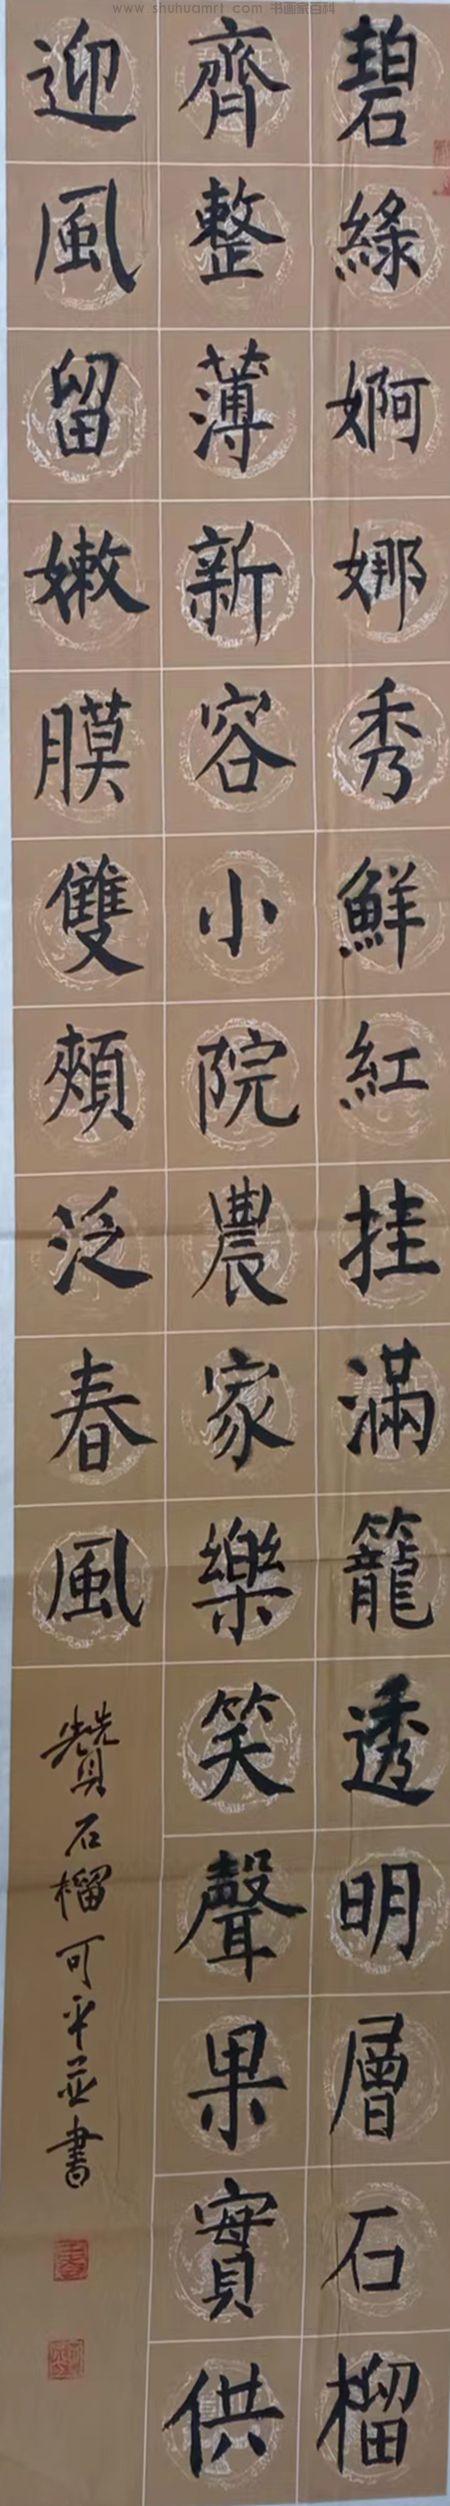 www.shuhuamrt.com 书画家百科
碧綠婀娜秀鮮紅挂滿籠透明層石榴
齊整薄新容小院農家樂笑聲果實供
迎風留嫩膜雙頰泛春風
贊石榴可平並書